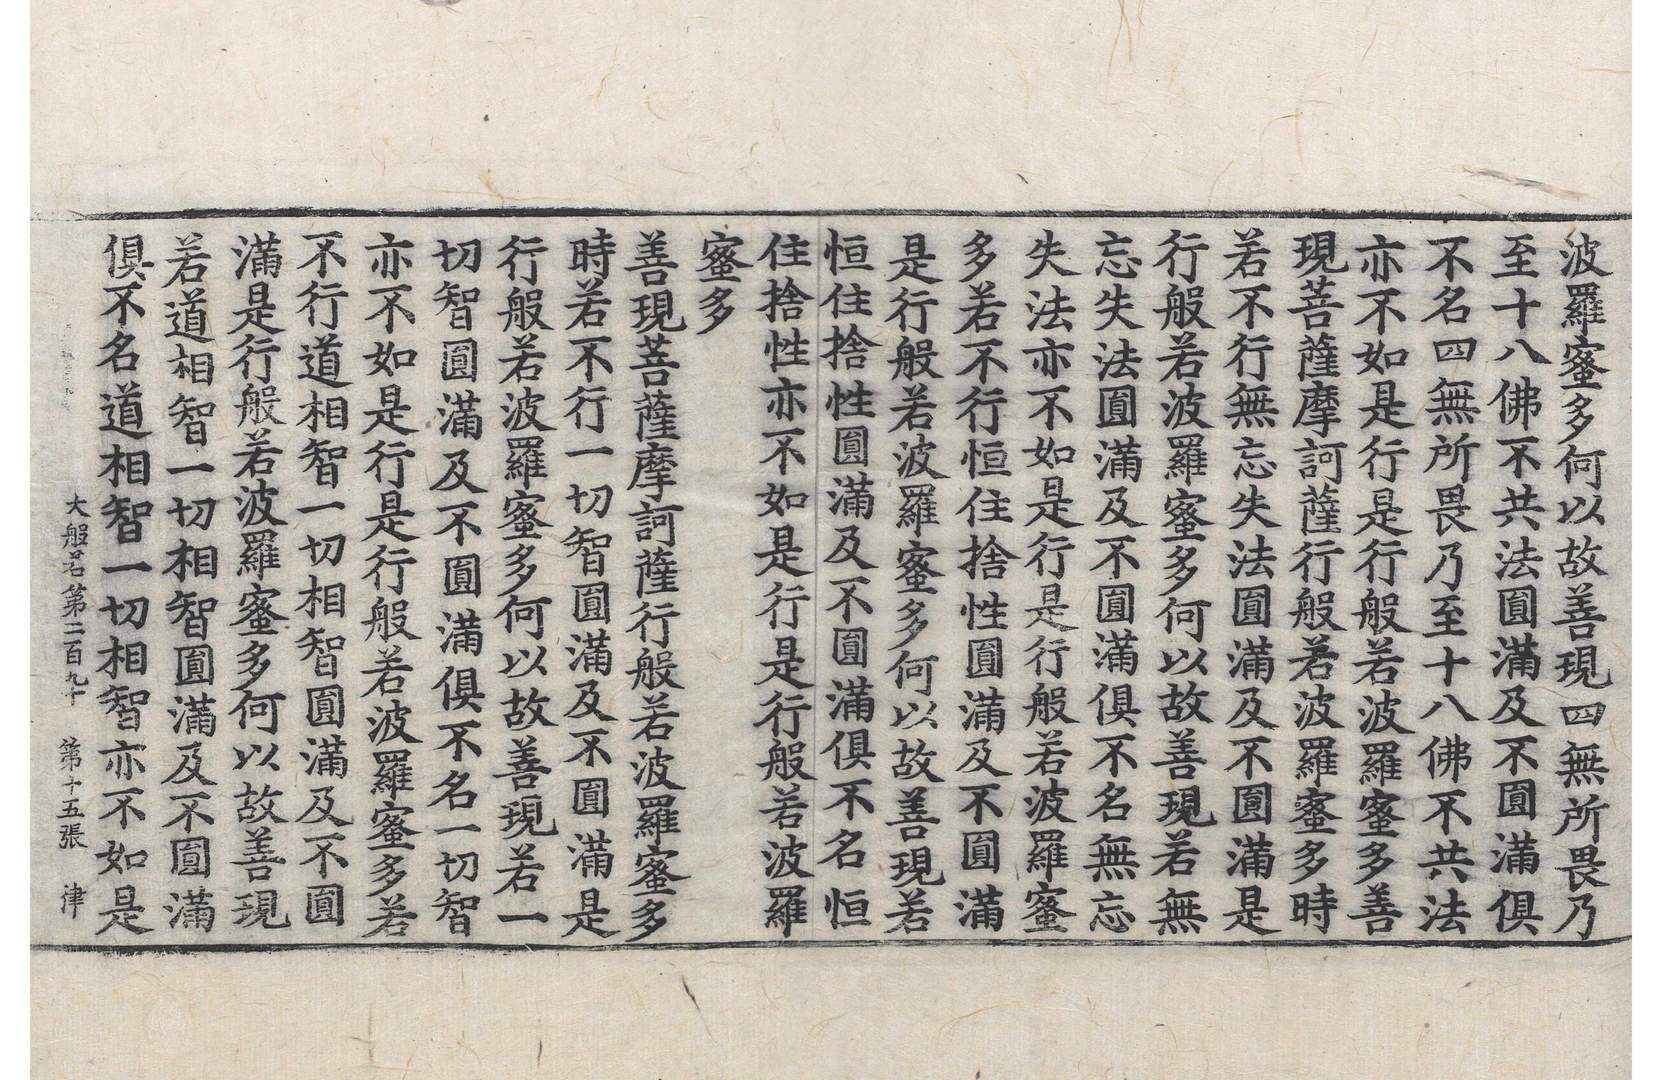 波羅蜜多何以故善現四無所畏乃
至十八佛不共法圓滿及不圓滿俱
不名四無所畏乃至十八佛不共法
亦不如是行是行般若波羅蜜多善
現菩薩摩訶薩行般若波羅蜜多時
若不行無忘失法圓滿及不圓滿是
行般若波羅蜜多何以故善現若無
忘失法圓滿及不圓滿俱不名無忘
失法亦不如是行是行般若波羅蜜
多若不行恒住捨性圓滿及不圓滿
是行般若波羅蜜多何以故善現若
恒住捨性圓滿及不圓滿俱不名恒
住捨性亦不如是行是行般若波羅
蜜多
善現菩薩摩訶薩行般若波羅蜜多
時若不行一切智圓滿及不圓滿是
行般若波羅蜜多何以故善現若一
切智圓滿及不圓滿俱不名一切智
亦不如是行是行般若波羅蜜多若
不行道相智一切相智圓滿及不圓
滿是行般若波羅蜜多何以故善現
若道相智一切相智圓滿及不圓滿
俱不名道相智一切相智亦不如是
大般若第二百九十 第十五張 律